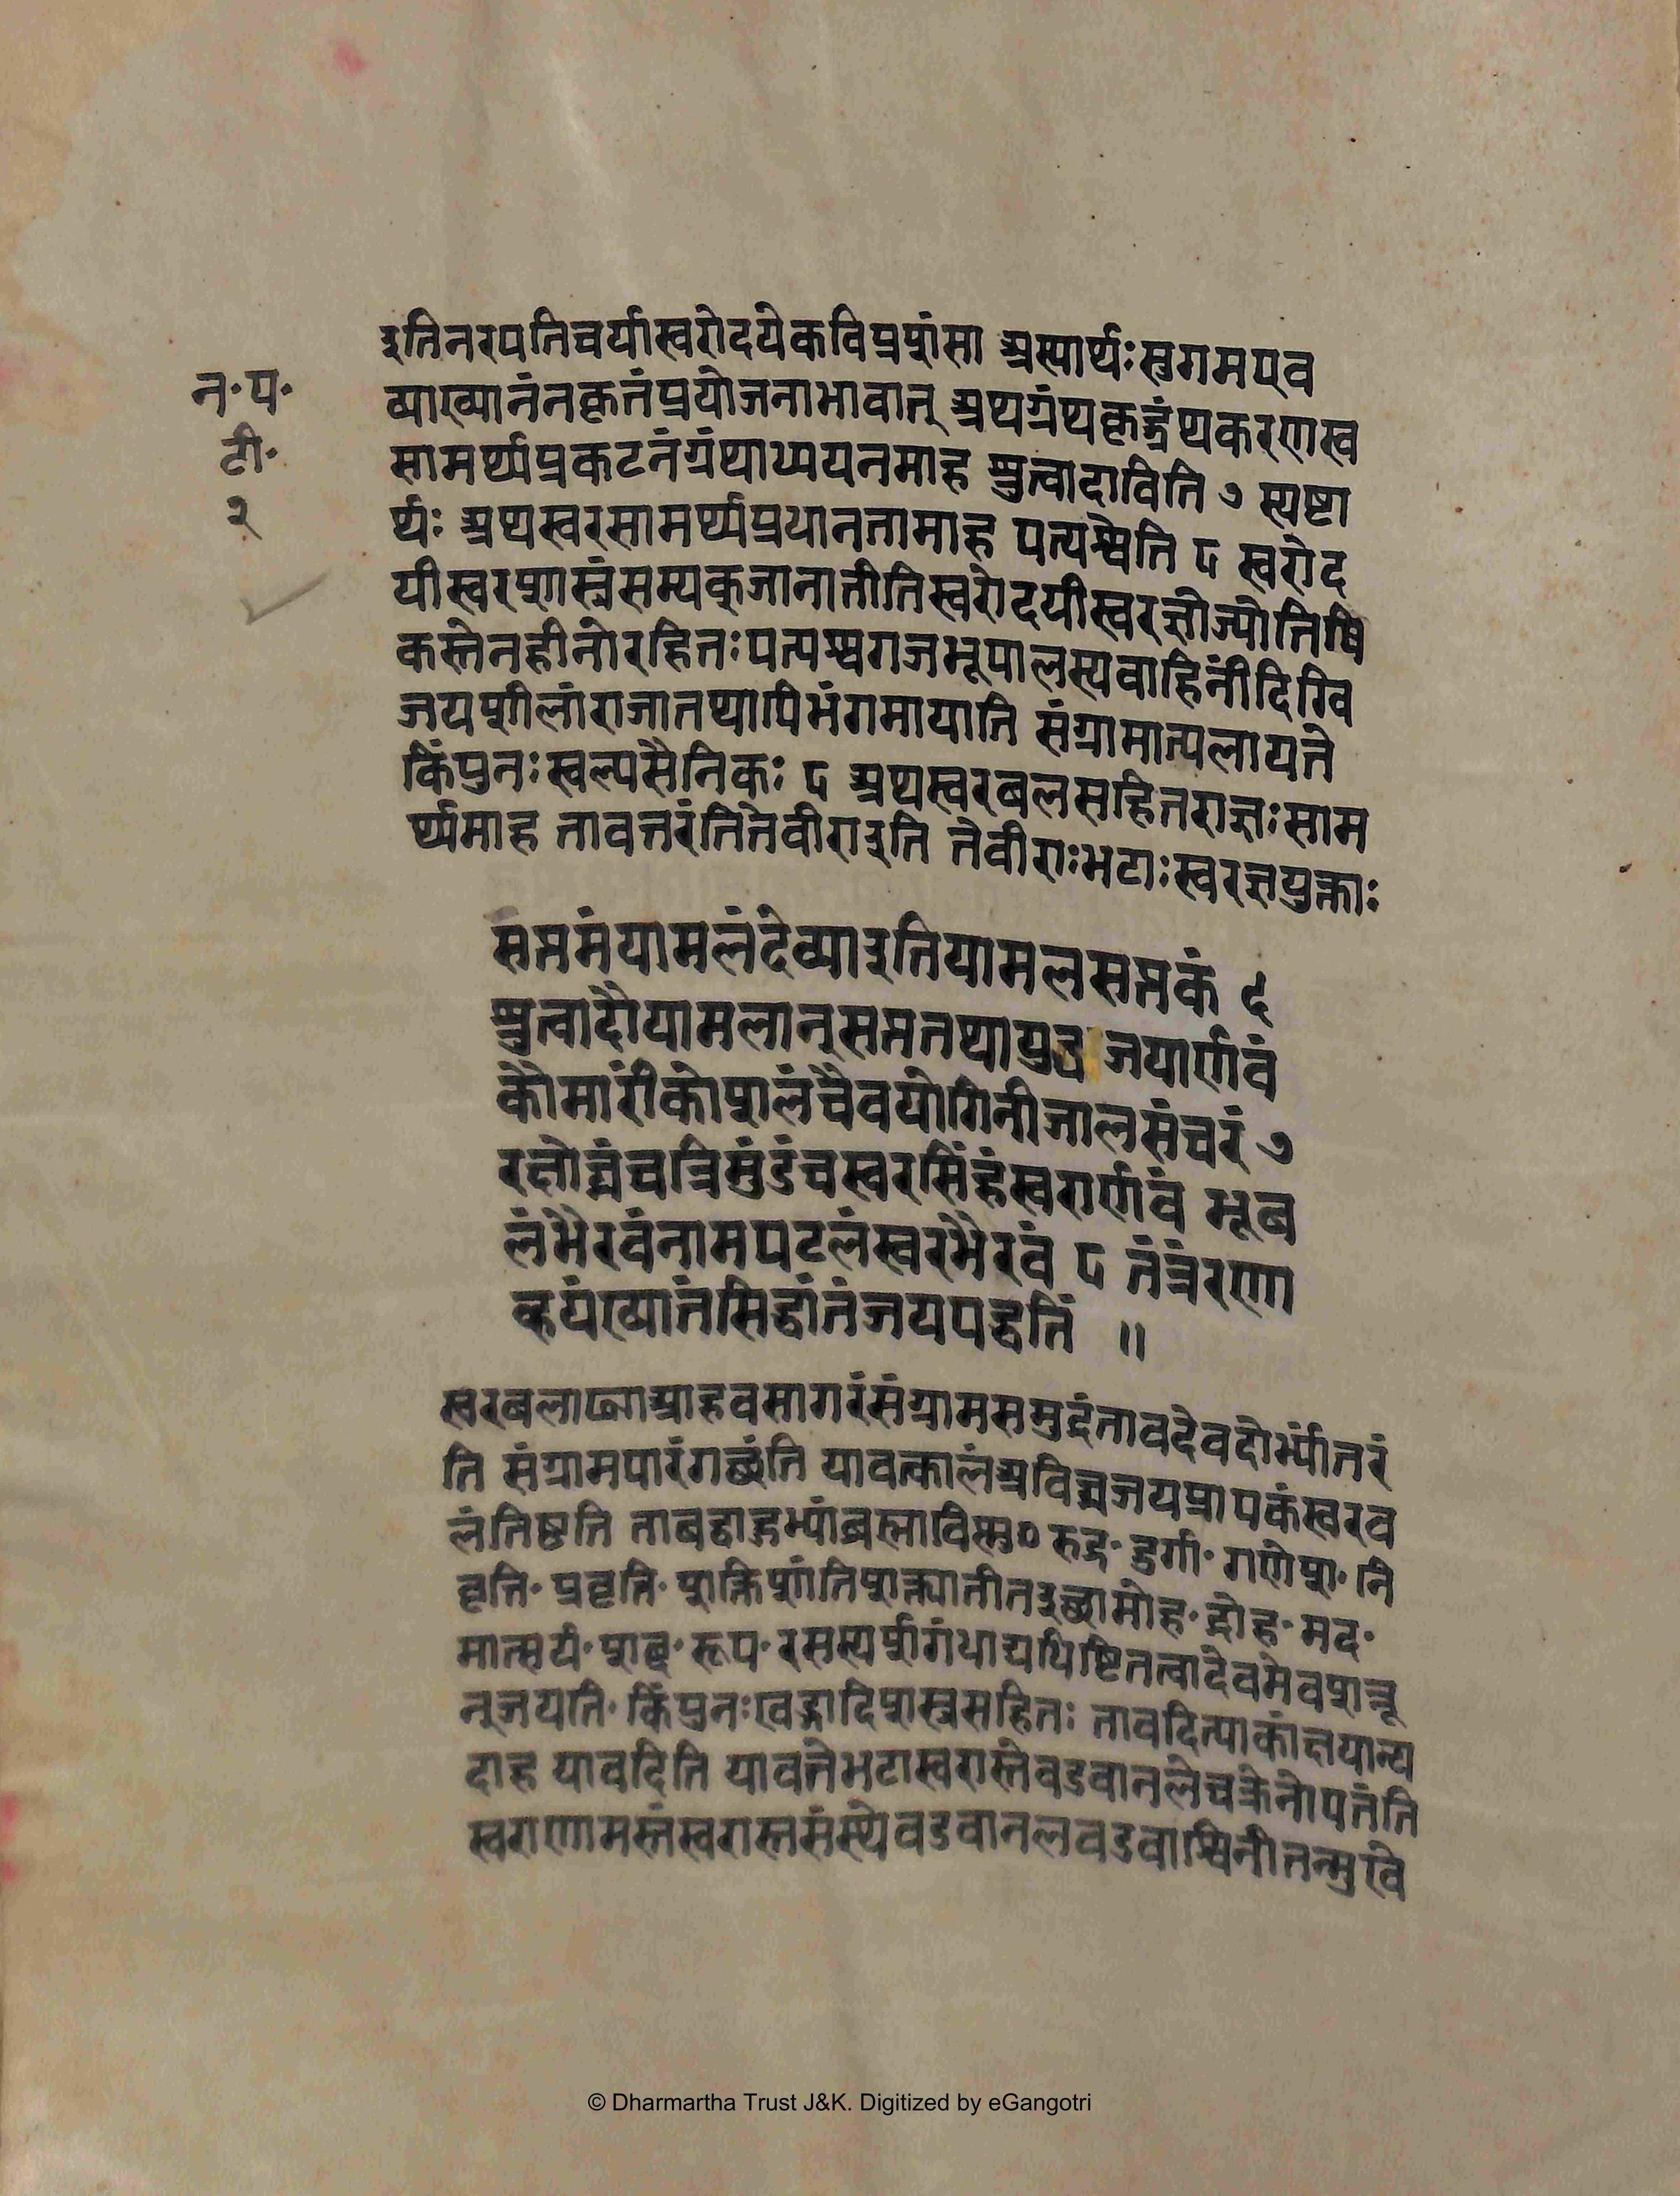 न॰प॰
टी॰
२
इतिनरपतिचर्यास्वरोदयेकविप्रशंसा अस्यार्थः सुगमएव
व्याख्यानंनकृतंप्रयोजनाभावात् अथग्रंथकृद्ग्रंथकरणेस्व
सामर्थ्यप्रकटनंग्रंथाध्ययनमाह श्रुत्वादाविति ७ स्पष्टा
र्थः अथस्वरसामर्थ्यप्रधानतामाह पत्यश्वेति ८ स्वरोद
यीस्वरशास्त्रंसम्यक्जानातीतिस्वरोदयीस्वरज्ञोज्योतिषि
कस्तेनहीनोरहितःपत्यश्वगजभूपालस्यवाहिनींदिग्वि
जयशीलांराजातथापिभंगमायाति संग्रामात्पलायते
किंपुनःस्वल्पसैनिकः ८ अथस्वरबलसहितराज्ञःसाम
र्थ्यमाह तावत्तरंतितेवीराइति तेवीराःभटाःस्वरज्ञयुक्ताः
सप्तमंयामलंदेव्याइतियामलसप्तकं ६
श्रुत्वादौयामलान्सप्ततथायुद्धजयार्णवं
कौमारींकोशलंचैवयोगिनीजालसंचरं ७
रक्षोघ्नंचत्रिमुंडंचस्वरसिंहंस्वरार्णवं भूब
लंभैरवंनामपटलंस्वरभैरवं ८ तंत्रंरणा
व्हयंख्यातंसिद्धांतंजयपद्धतिं ॥
स्वरबलाढ्याआहवसागरंसंग्रामसमुद्रंतावदेवदोर्भ्यांतरं
ति संग्रामपारंगछंति यावत्कालंअविघ्नजयप्रापकंस्वरब
लंतिष्टति ताबद्बाहुभ्यांब्रह्माविष्णु॰ रुद्र॰ दुर्गा॰ गणेश॰ नि
वृत्ति॰ प्रवृत्ति॰ शक्तिशांतिशक्त्यातीतइछामोह॰ द्रोह॰ मद॰
मात्सर्य॰ शब्द॰ रूप॰ रसस्पर्शगंधाद्यधिष्टितत्वादेवमेवशत्रू
न्जयति॰ किंपुनःखङ्गादिशस्त्रसहितः तावदित्याकांक्षयान्य
दाह यावदिति यावत्तेभटास्वरास्तेवडवानलेचक्रेनोपतंति
स्वराणामस्तंस्वरास्तसंस्थेवडवानलवडवाश्विनीतन्मुखे
© Dharmartha Trust J&K. Digitized by eGangotri